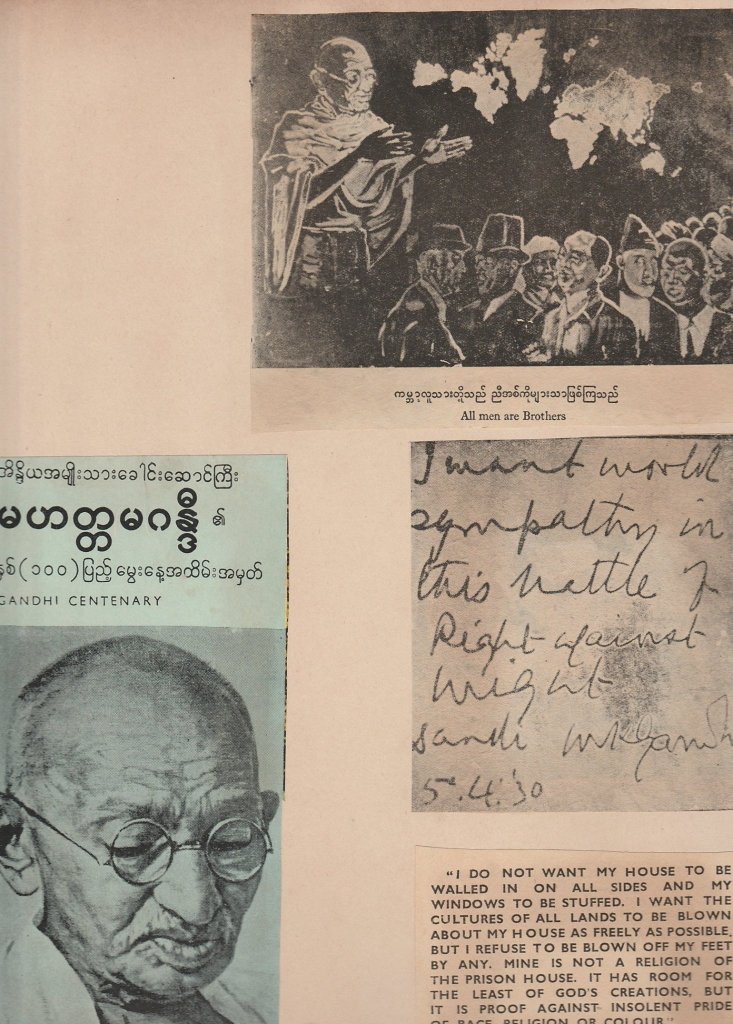 ကမ္ဘာ့လူသားတို့သည် ညီအစ်ကိုများသာဖြစ်ကြသည်
All men are Brothers
အိန္ဒိယအမျိုးသားခေါင်းဆောင်ကြီး
မဟတ္တမဂန္ဒီ ၏
နှစ်(၁၀၀)ပြည့် မွေးနေ့အထိမ်းအမှတ်
GANDHI CENTENARY
I want world
sympathy in
this battle of
Right against
might
Dandi MKGandhi
5.4.'30
"I DO NOT WANT MY HOUSE TO BE
WALLED IN ON ALL SIDES AND MY
WINDOWS TO BE STUFFED. I WANT THE
CULTURES OF ALL LANDS TO BE BLOWN
ABOUT MY HOUSE AS FREELY AS POSSIBLE,
BUT I REFUSE TO BE BLOWN OFF MY FEET
BY ANY. MINE IS NOT A RELIGION OF
THE PRISON HOUSE. IT HAS ROOM FOR
THE LEAST OF GOD'S CREATIONS, BUT
IT IS PROOF AGAINST INSOLENT PRIDE
OF RACE, RELIGION OR COLOUR."